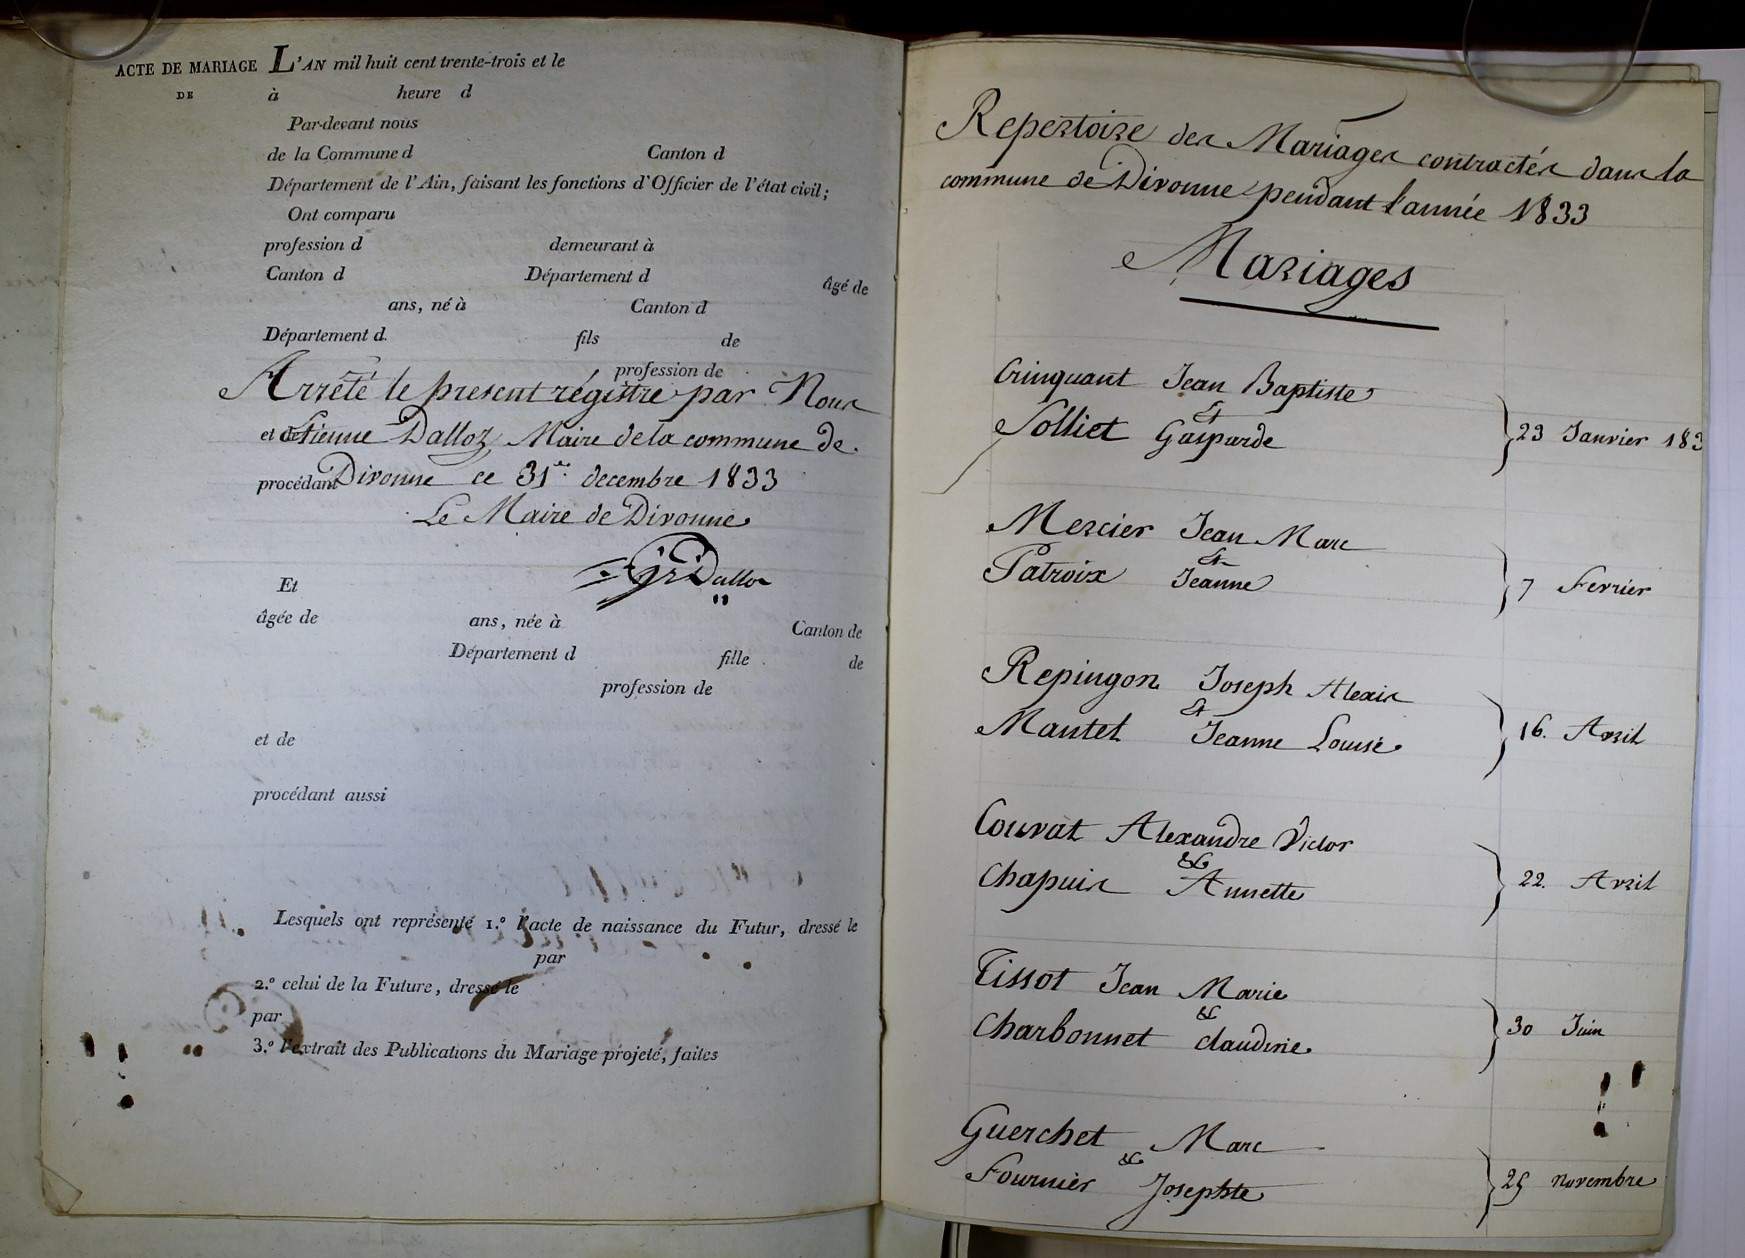 ACTE DE MARIAGE L'AN mil huit cent trente-trois et le
DE à heure d
Par-devant nous
de la Commune d Canton d
Département de l'Ain, faisant les fonctions d'Officier de l'état civil;
Ont comparu
profession d demeurant à
Canton d Département d âgé de
ans, né à Canton d
Département d fils de
profession de
Arrêté le present régistre par Nous
et de Etienne Dalloz Maire de la commune de
procédant Divonne ce 31 decembre 1833
Le Maire de Divonne
Dalloz
Et
âgée de ans, née à Canton de
Département d fille de
profession de
et de
procédant aussi
Lesquels ont représenté 1.º l'acte de naissance du Futur, dressé le
par
2.º celui de la Future, dressé le
par
3.º l'extrait des Publications du Mariage projeté, faites
Repertoire des Mariages contractés dans la
commune de Divonne pendant l'année 1833
Mariages
Crinquant Jean Baptiste
Et
Solliet Gasparde } 23 Janvier 183
Mercier Jean Marc
Et
Patroix Jeanne } 7 Fevrier
Repingon Joseph Alexis
Et
Mantel Jeanne Louise } 16. Avril
Couvat Alexandre Victor
&
Chapuis Annette } 22. Avril
Tissot Jean Marie
&
Charbonnet claudine } 30 Juin
Guerchet Marc
&
Fournier Josephte } 25 novembre